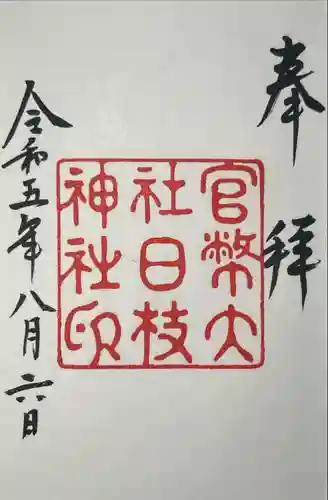 奉拝
官幣大
社日枝
神社印
令和五年八月六日